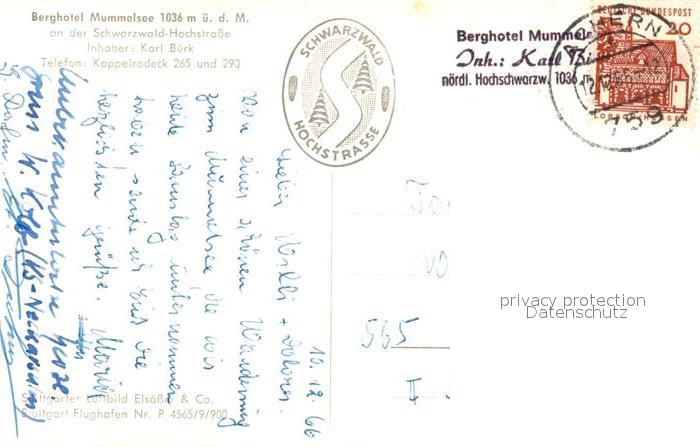 Berghotel Mummelsee 1036 m ü. d. M.
an der Schwarzwald-Hochstraße
Inhaber: Karl Bürk
Telefon: Kappelrodeck 265 und 290
SCHWARZWALD
HOCHSTRASSE
Berghotel Mummels
Inh.: Karl B
nördl. Hochschwarzw. 1036
DEUTSCHE BUNDESPOST
20
LORSCH HESSEN
ACHERN
759
10.12.66
Liebe Willi + Dolores.
Von einer schönen Wanderung
zum Mummelsee, die wir
heute Samstag unternommen
haben sende ich Euch die
herzlichsten Grüße.
Unbekannterweise
Gruss W. Kolb
565
privacy protection
Datenschutz
Stuttgarter Luftbild Elsäßer & Co.
Stuttgart Flughafen Nr. P 4565/9/900